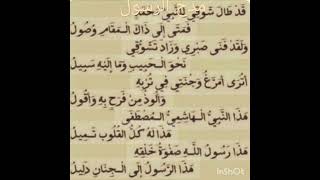 مدح الرسول
قَدْ طَالَ شَوْقِي لِلنَّبِيِّ مُحَمَّدٍ
فَمَتَى إِلَى ذَاكَ الْمَقَامِ وُصُولُ
وَلَقَدْ فَنَى صَبْرِي وَزَادَ تَشَوُّقِي
نَحْوَ الْحَبِيبِ وَمَا إِلَيْهِ سَبِيلُ
أَتُرَى أُمَرِّغُ وَجْنَتِي فِي تُرْبِهِ
وَأَلُوذُ مِنْ فَرَحٍ بِهِ وَأَقُولُ
هَذَا النَّبِيُّ الْهَاشِمِيُّ الْمُصْطَفَى
هَذَا لَهُ كُلُّ الْقُلُوبِ تَمِيلُ
هَذَا رَسُولُ اللَّهِ صَفْوَةُ خَلْقِهِ
هَذَا الرَّسُولُ إِلَى الْجِنَانِ دَلِيلُ
InShOt